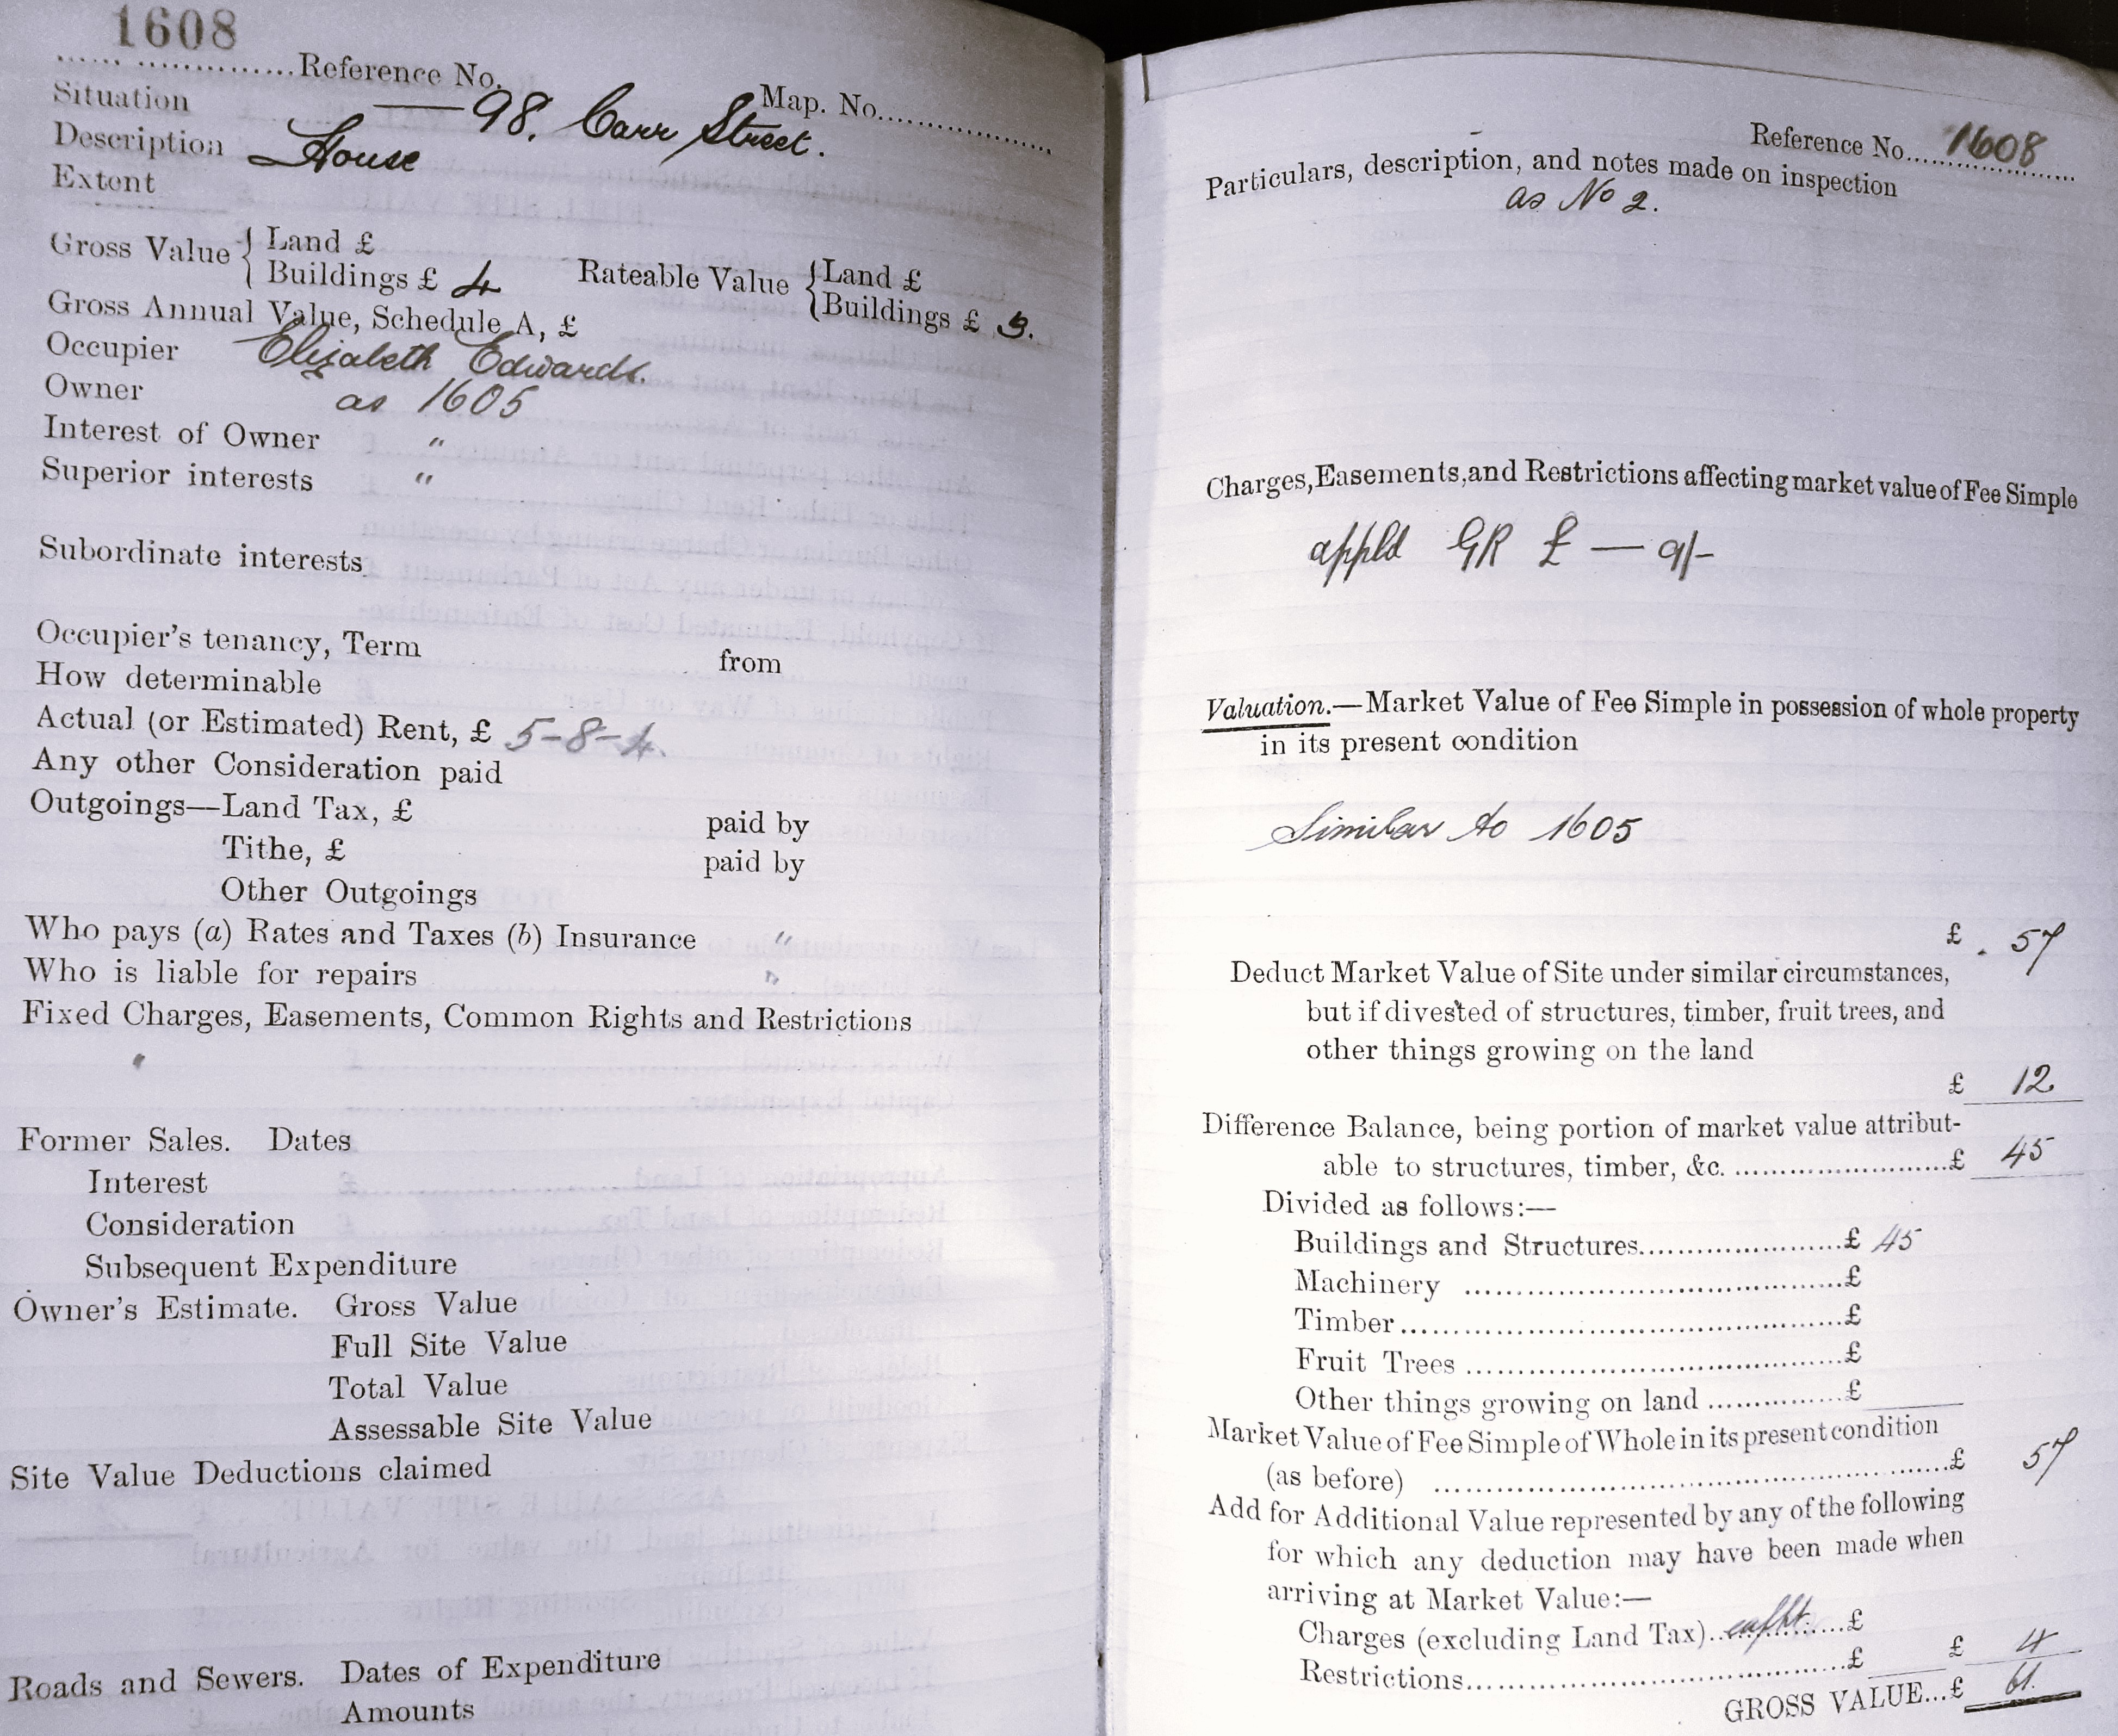 1608
.................Reference No. Map. No..................
Situation — 98. Carr Street.
Description House
Extent
Gross Value { Land £
Buildings £ 4 Rateable Value { Land £
Buildings £ 3.
Gross Annual Value, Schedule A, £
Occupier Elizabeth Edwards.
Owner as 1605
Interest of Owner "
Superior interests "
Subordinate interests
Occupier's tenancy, Term from
How determinable
Actual (or Estimated) Rent, £ 5-8-4.
Any other Consideration paid
Outgoings—Land Tax, £ paid by
Tithe, £ paid by
Other Outgoings
Who pays (a) Rates and Taxes (b) Insurance "
Who is liable for repairs "
Fixed Charges, Easements, Common Rights and Restrictions
"
Former Sales. Dates
Interest
Consideration
Subsequent Expenditure
Owner's Estimate. Gross Value
Full Site Value
Total Value
Assessable Site Value
Site Value Deductions claimed
Roads and Sewers. Dates of Expenditure
Amounts
Reference No. 1608
Particulars, description, and notes made on inspection
as No 2.
Charges, Easements, and Restrictions affecting market value of Fee Simple
appld GR £ — 9/-
Valuation.—Market Value of Fee Simple in possession of whole property
in its present condition
Similar to 1605
£ 57
Deduct Market Value of Site under similar circumstances,
but if divested of structures, timber, fruit trees, and
other things growing on the land
£ 12
Difference Balance, being portion of market value attribut-
able to structures, timber, &c. ........................£ 45
Divided as follows:—
Buildings and Structures......................£ 45
Machinery ..........................................£
Timber................................................£
Fruit Trees ..........................................£
Other things growing on land ...............£
Market Value of Fee Simple of Whole in its present condition
(as before) ..........................................................£ 57
Add for Additional Value represented by any of the following
for which any deduction may have been made when
arriving at Market Value:—
Charges (excluding Land Tax)..............£
Restrictions..........................................£ £ 4
GROSS VALUE...£ 61.